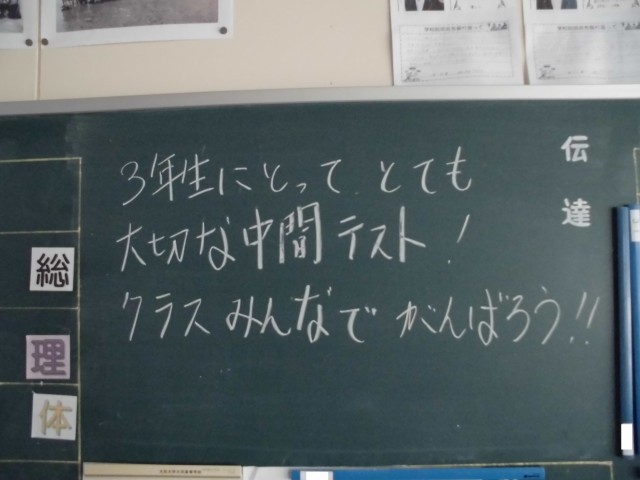 3年生にとって とても
大切な中間テスト!
クラスみんなで がんばろう!!
伝達
総
理
体